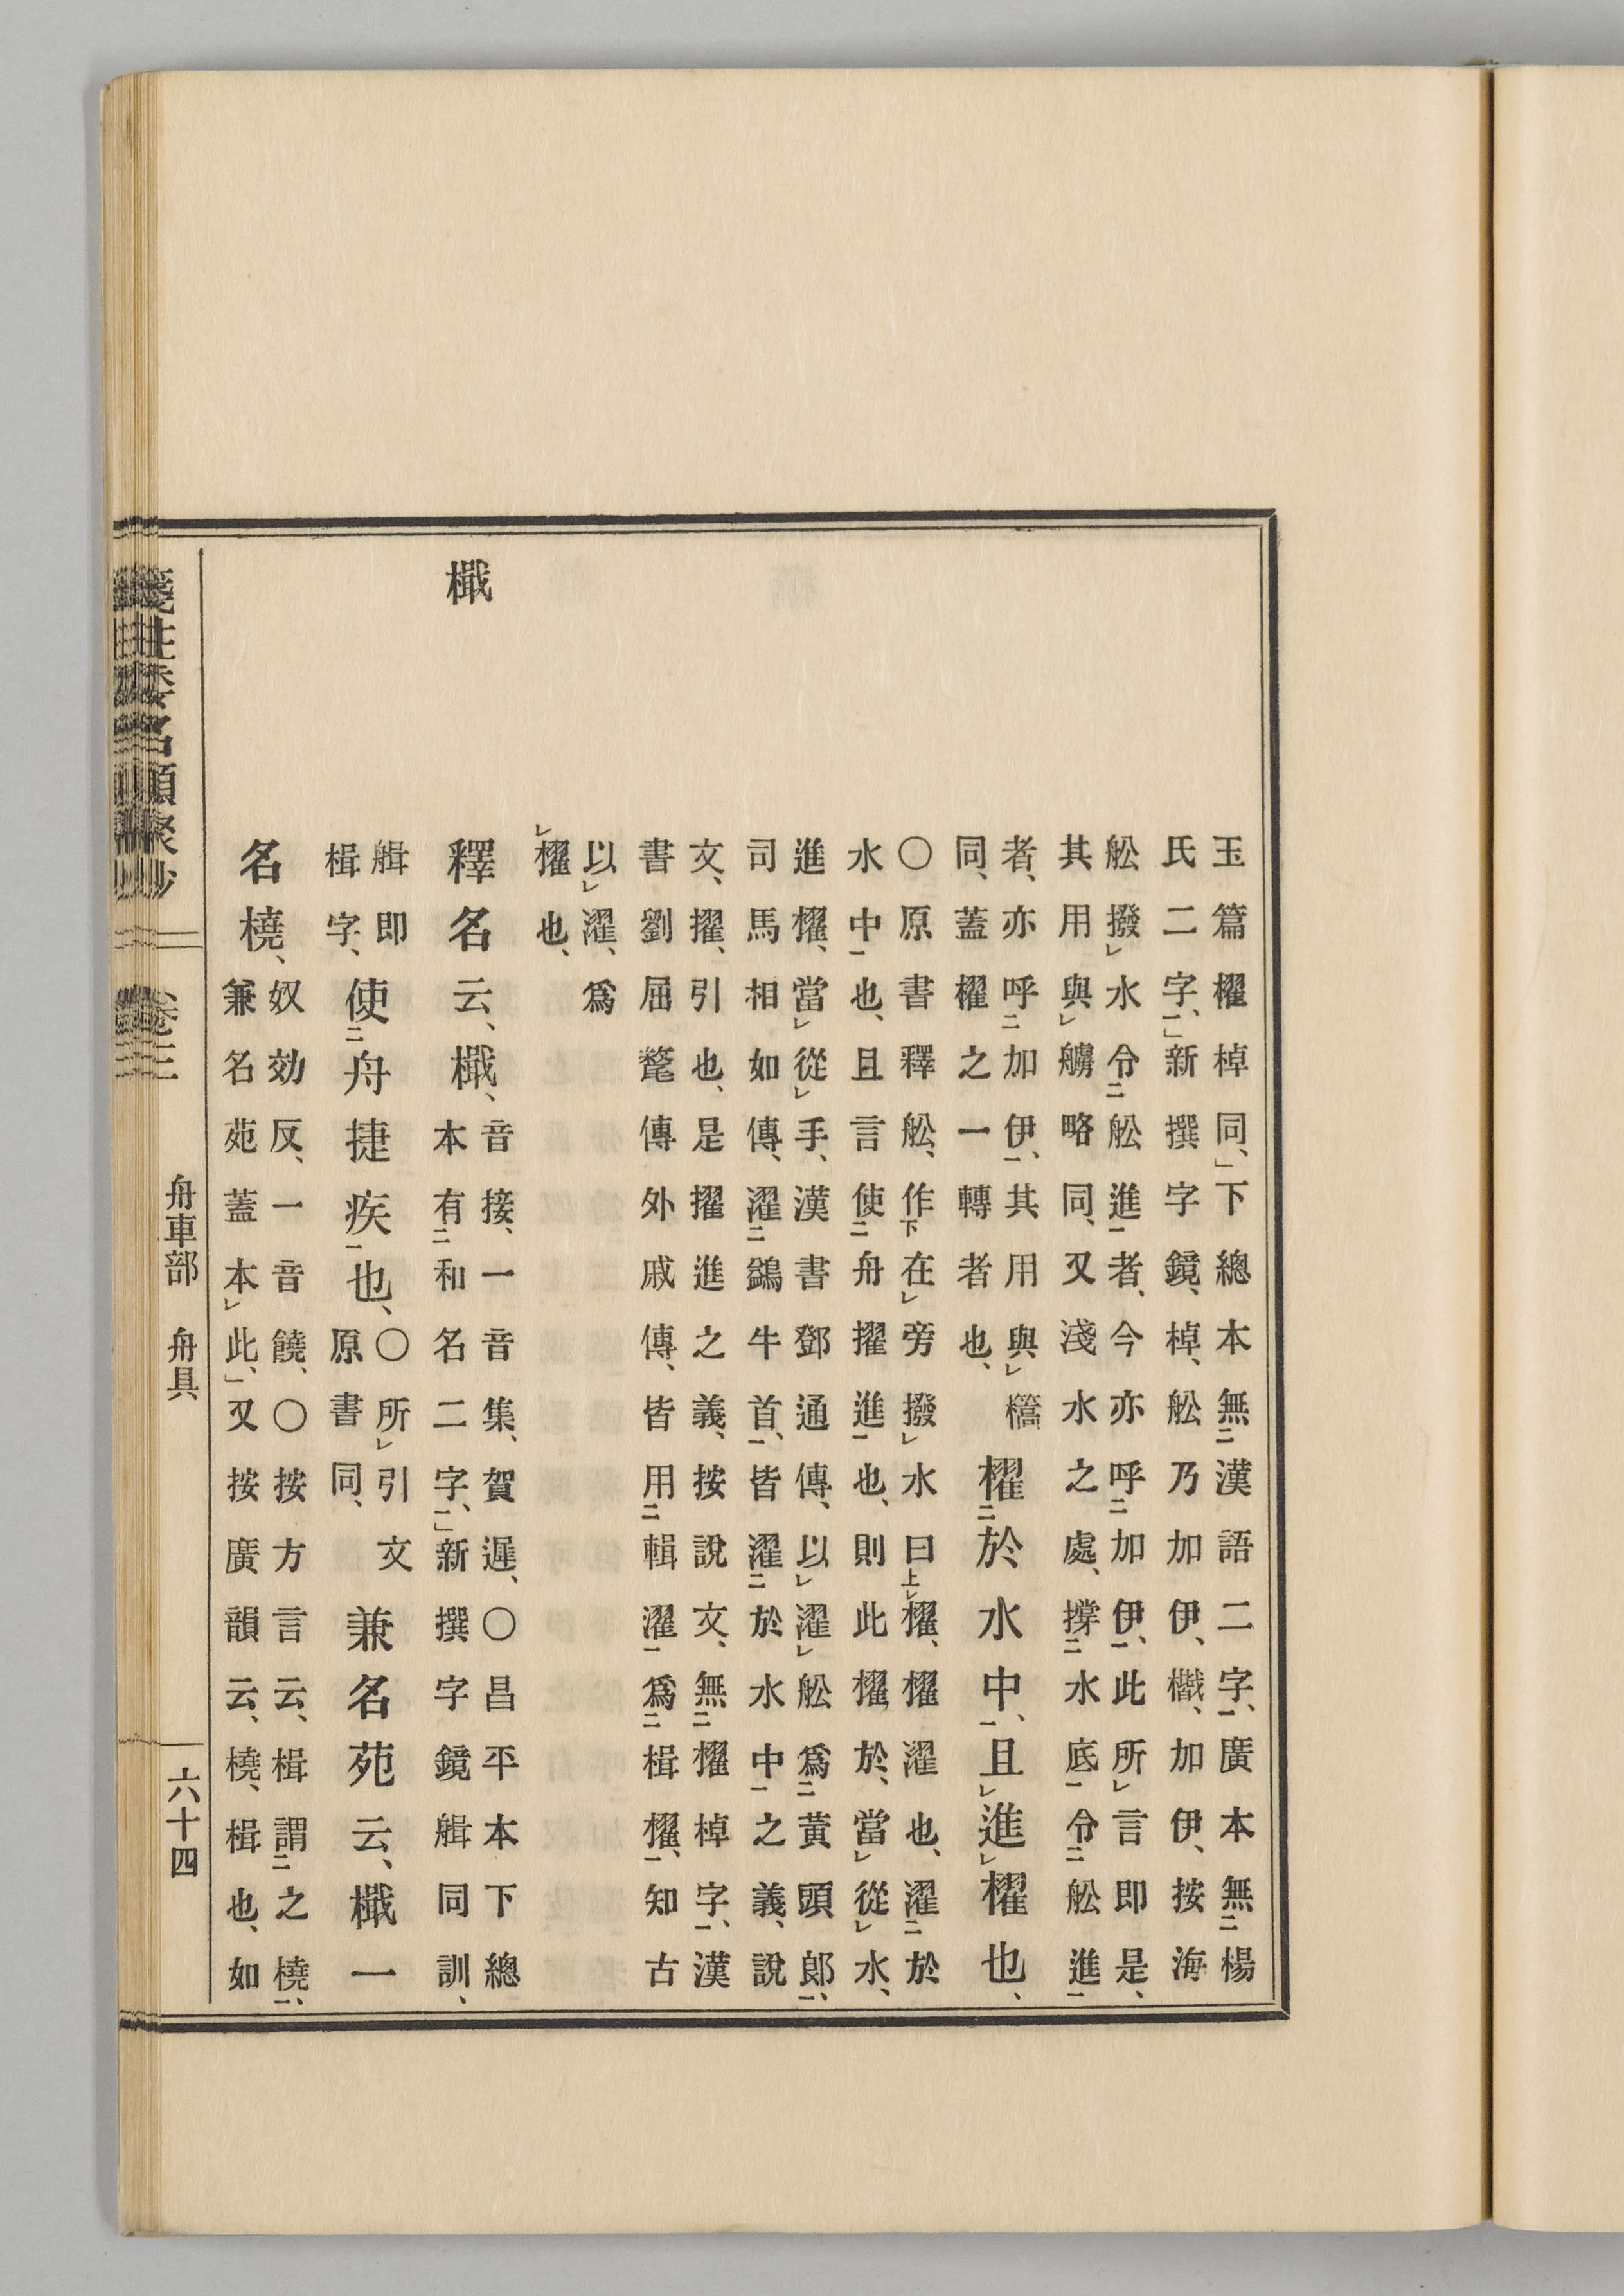 玉篇櫂棹同、」下總本無㆓漢語二字㆒、廣本無㆓楊
氏二字㆒、」新撰字鏡、棹、舩乃加伊、㰉、加伊、按海
舩撥㆑水令㆓舩進㆒者、今亦呼㆓加伊㆒、此所㆑言即是、
其用與㆑艣略同、又淺水之處、撐㆓水底㆒令㆓舩進㆒
者、亦呼㆓加伊㆒、其用與㆑
同、蓋櫂之一轉者也、
櫂㆓於水中㆒、且㆑進㆑櫂也、
○原書釋舩、作㆘在㆑旁撥㆑水曰㆖㆑櫂、櫂濯也、濯㆓於
水中㆒也、且言使㆓舟擢進㆒也、則此櫂於、當㆑從㆑水、
進櫂、當㆑從㆑手、漢書鄧通傳、以㆑濯㆑舩爲㆓黃頭郎㆒、
司馬相如傳、濯㆓鷁牛首㆒、皆濯㆓於水中㆒之義、說
文、擢、引也、是擢進之義、按說文、無㆓櫂棹字㆒、漢
書劉屈氂傳外戚傳、皆用㆓輯濯㆒爲㆓楫櫂㆒、知古
以㆑濯、爲
㆑櫂也、
檝
釋名云、檝、
音接、一音集、賀遲、○昌平本下總
本有㆓和名二字㆒、」新撰字鏡艥同訓、
艥即
楫字、
使㆓舟捷疾㆒也、
○所㆑引文
原書同、
兼名苑云、檝一
名橈、
奴効反、一音饒、○按方言云、楫謂㆓之橈㆒、
兼名苑蓋本㆑此、」又按廣韻云、橈、楫也、如
箋注倭名類聚抄 卷三 舟車部 舟具 六十四